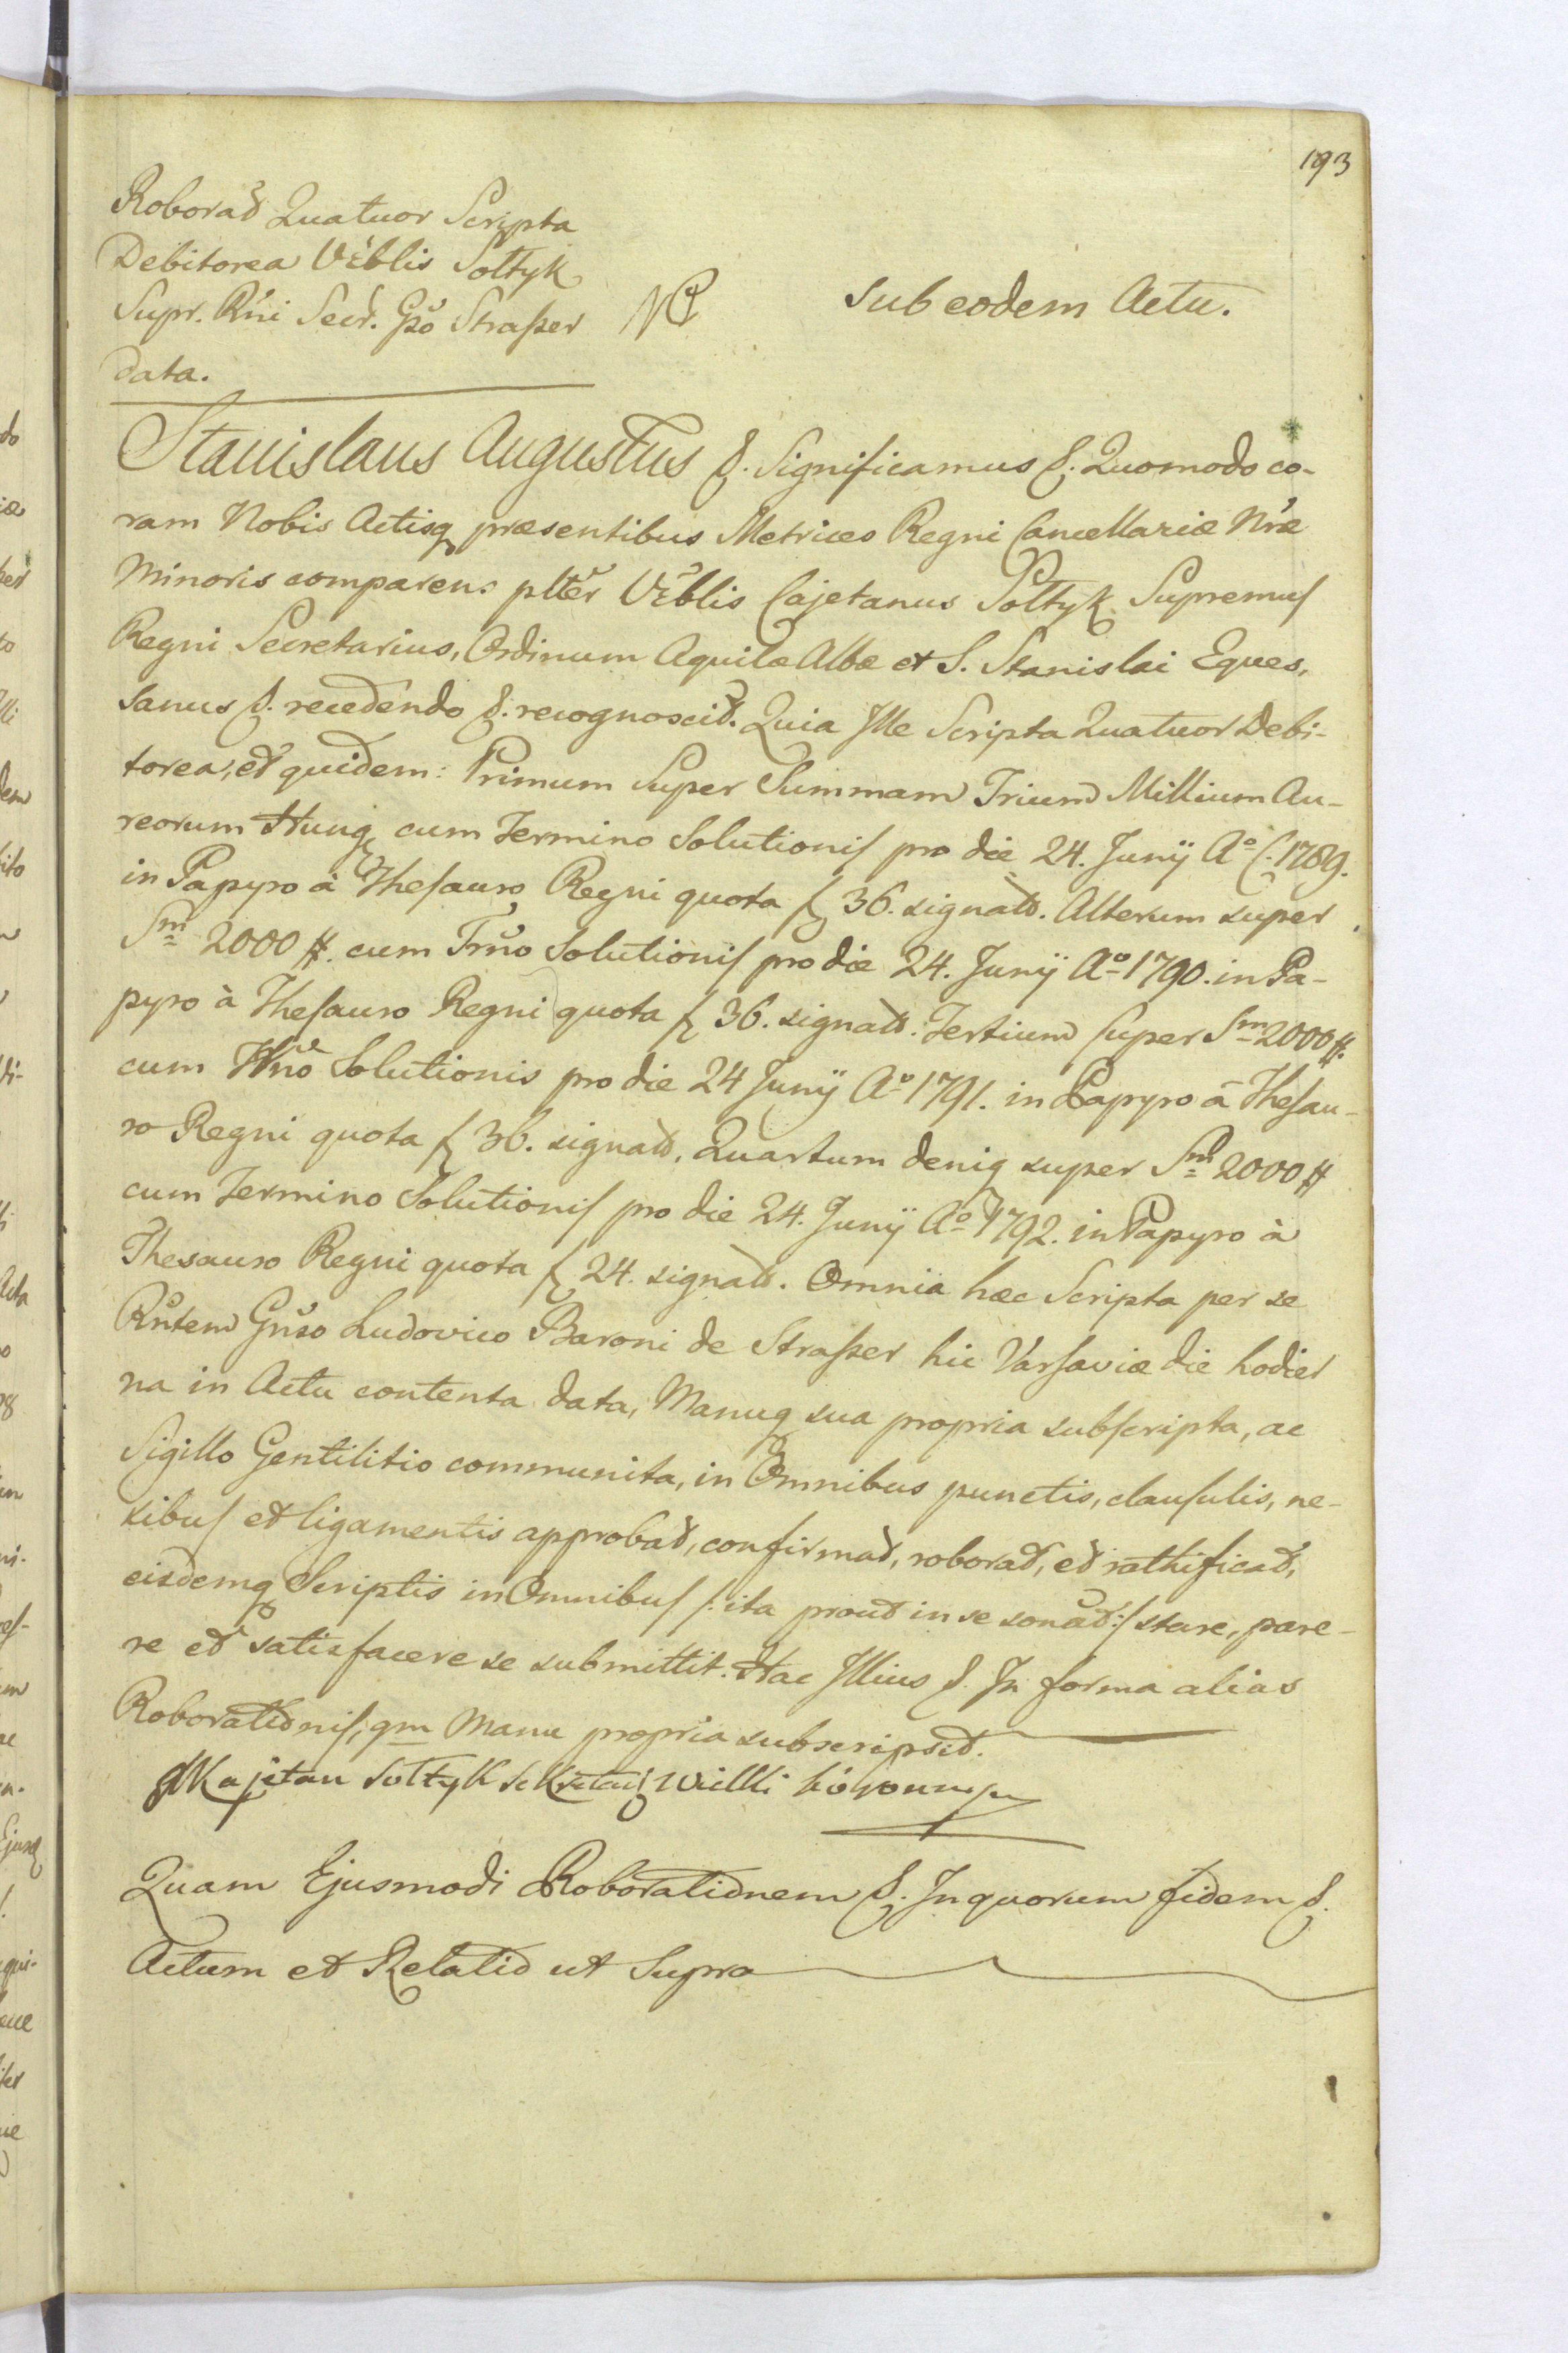 193
Roborat Quatuor Scripta
Debitorea Vẽblis Sołtyk
Supr. Rni Secr. Gso Straßer
data.
NP
sub eodem Actu.
Stanislaus Augustus &. Significamus &. Quomodo co-
ram Nobis Actisq præsentibus Metrices Regni Cancellariæ Nræ
Minoris comparens plter Vẽblis Cajetanus Sołtyk Supremus
Regni Secretarius, Ordinum Aquilæ Albæ et S. Stanislai Eques,
sanus &. recedendo &. recognoscit. Quia Ille Scripta Quatuor Debi-
torea, et quidem: Primum Super Summam Trium Millium Au-
reorum Hung cum Termino Solutionis pro die 24. Junÿ Aº C. 1789.
in Papyro à Thesauro Regni quota f 36. signato. Alterum super
Sm 2000 #. cum Trno Solutionis pro die 24. Junÿ Aº 1790. in Pa-
pyro à Thesauro Regni quota f 36. signato. Tertium super Sm 2000 #.
cum Trno Solutionis pro die 24 Junÿ Aº 1791. in Papyro à Thesau-
ro Regni quota f 36. signato, Quartum deniq super Sm 2000 #
cum Termino Solutionis pro die 24. Junÿ Aº 1792. in Papyro à
Thesauro Regni quota f 24. signato. Omnia hæc Scripta per se
Rntem Gnso Ludovico Baroni de Straßer hic Varsaviæ die hodier
na in Actu contenta data, Manuq sua propria subscripta, ac
Sigillo Gentilitio communita, in Omnibus punctis, clausulis, ne-
xibus et ligamentis approbat, confirmat, roborat, et rathificat,
eisdemq Scriptis in Omnibus /: ita prout in se sonat :/ stare, pare-
re et satisfacere se submittit. Hac Illius &. In forma alias
Roborationis, qm Manu propria subscripsit.
Kajetan Sołtyk Sekretarz Wielki Koronny
Quam Ejusmodi Roborationem &. In quorum fidem &.
Actum et Relatio ut Supra